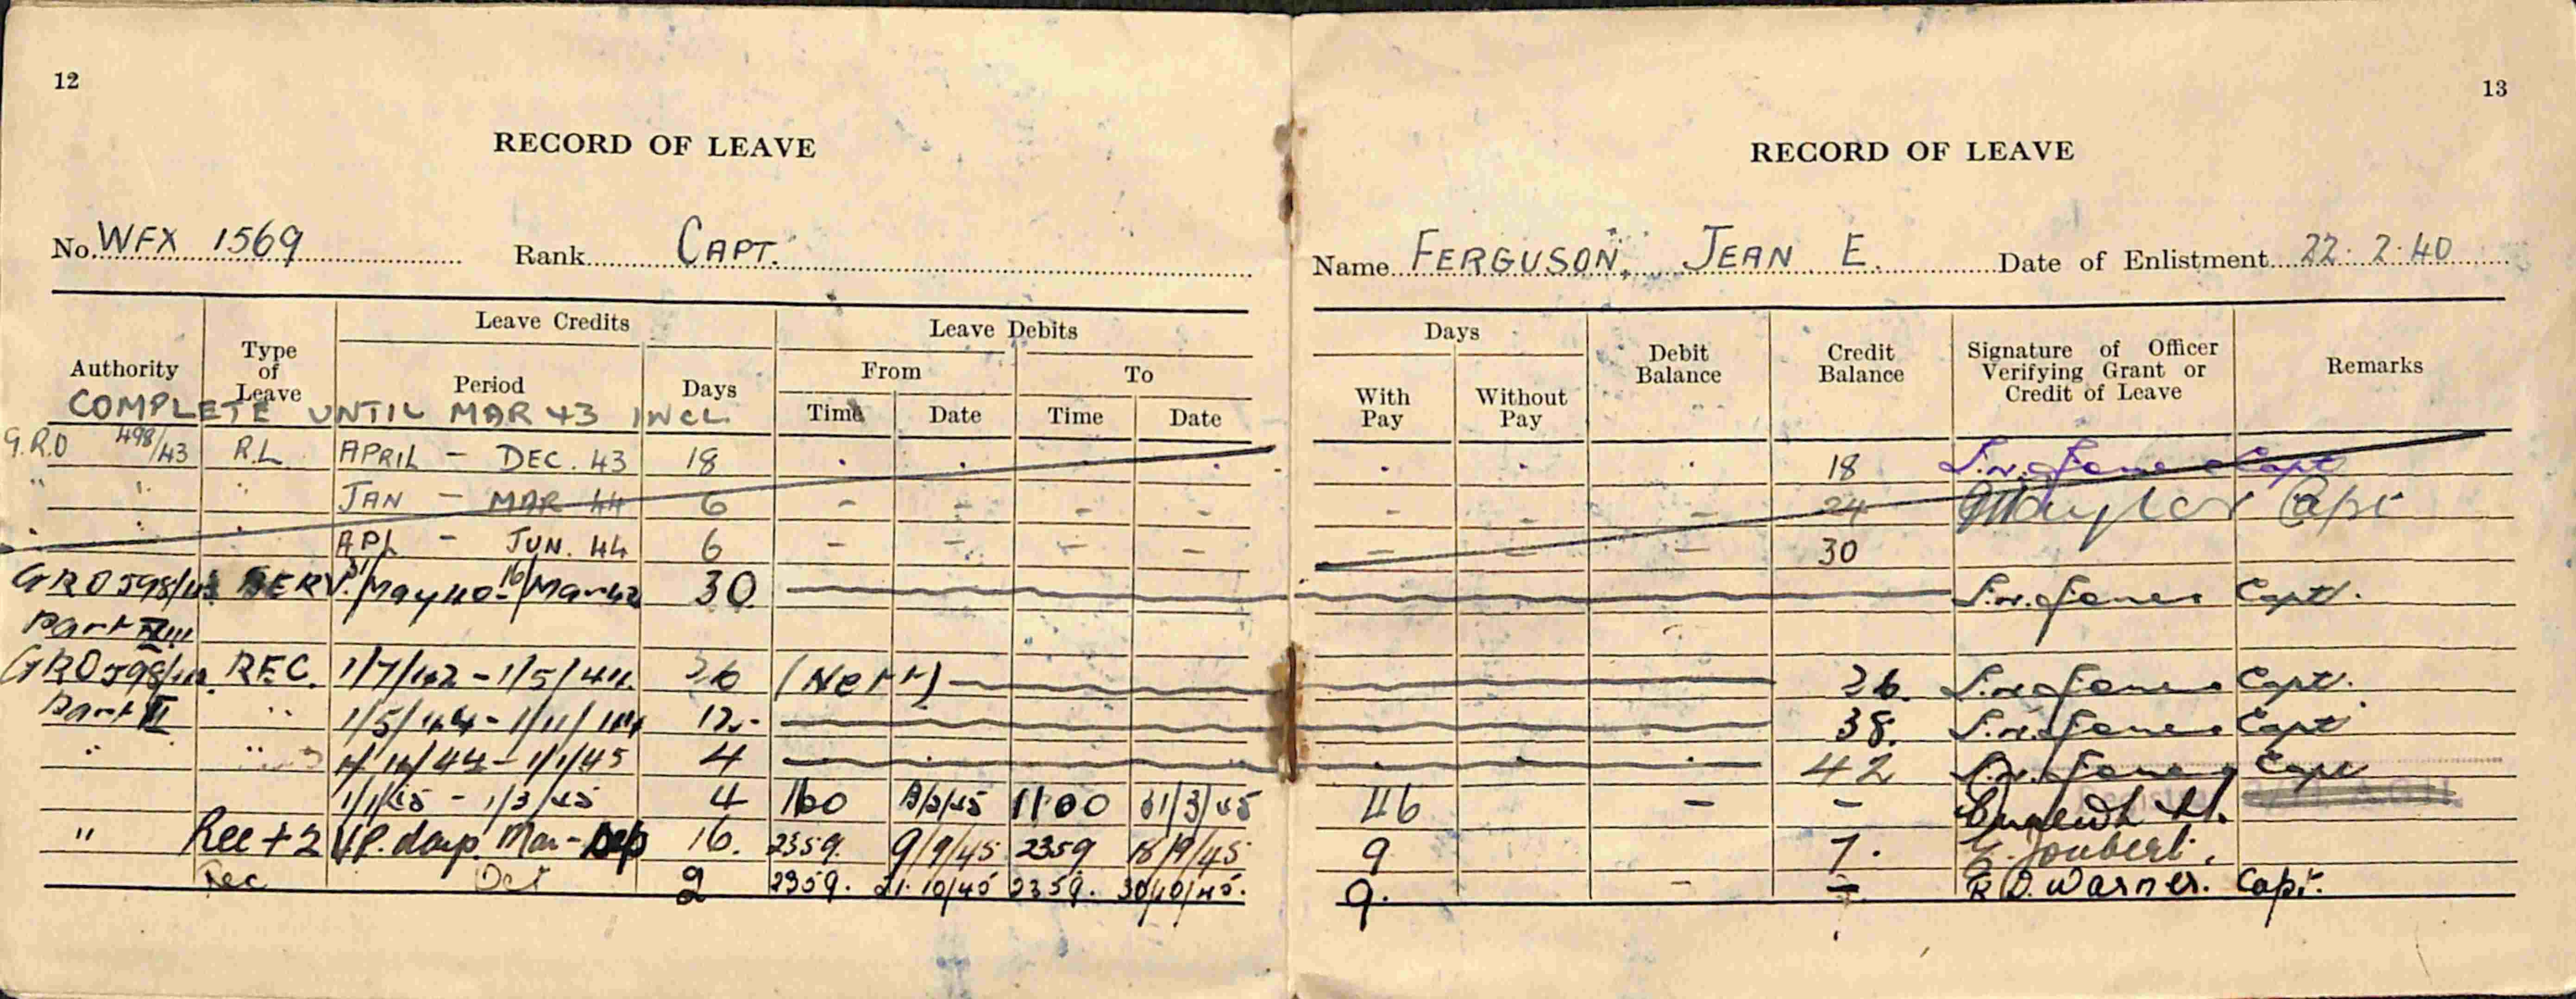 12
RECORD OF LEAVE
No. WFX 1569 Rank CAPT.
Leave Credits Leave Debits
Authority Type of Leave Period Days From To
Time Date Time Date
COMPLETE UNTIL MAR 43 INCL.
G.R.O 498/43 R.L. APRIL - DEC. 43 18
" " " JAN - MAR 44 6 - - - -
" " " APL - JUN. 44 6 - - - -
GRO SERV. May 40 - 16/Mar 42 30
Part
GRO REC. 1/7/42 - 1/5/44. 26 (Nett)
Part II " 1/5/44 - 1/11/44 12.
" " 1/11/44 - 1/1/45 4
1/1/45 - 1/3/45 4 1100 31/3/45
" Rec + 2 V.P. days Mar - Sep 16. 2359. 9/9/45 2359 18/9/45
Rec Oct 2 2359. 21.10/45 2359. 30/10/45.
13
RECORD OF LEAVE
Name FERGUSON, JEAN E. Date of Enlistment 22.2.40
Days Debit Balance Credit Balance Signature of Officer Verifying Grant or Credit of Leave Remarks
With Pay Without Pay
18 Capt
- - - 24 Capt
- - - 30
Capt.
26. Capt.
38. Capt
42 Capt
46 - - Lt.
9 7. Joubert.
9. - - R.D. Warner. Capt.